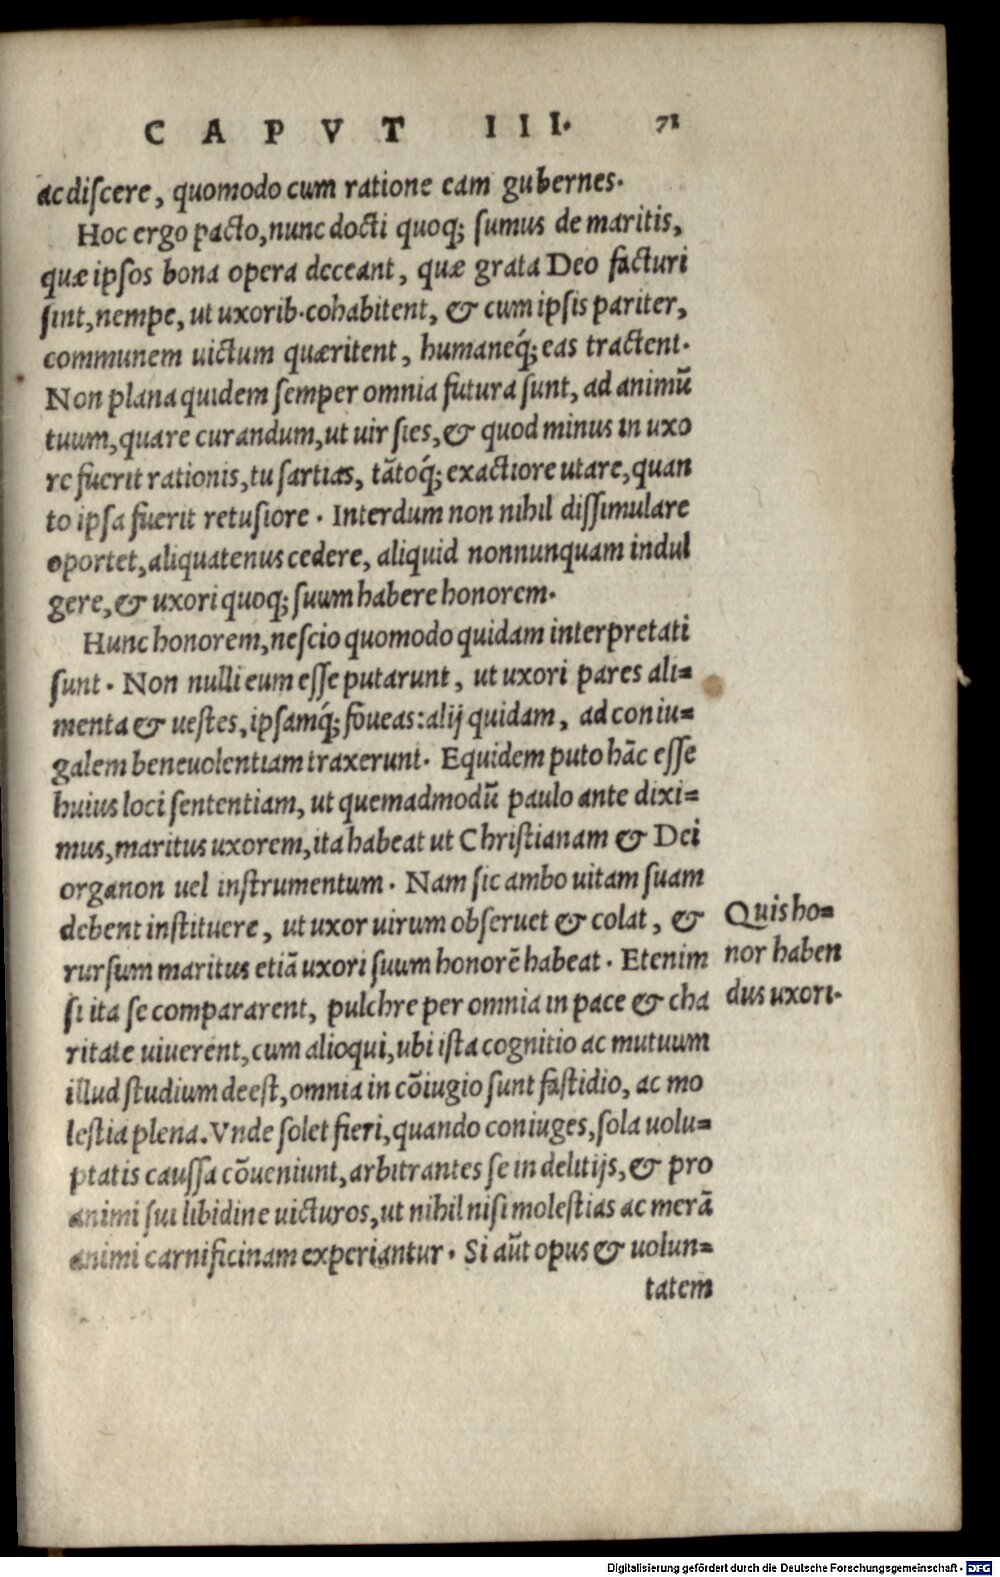 CAPVT III. 71
ac diſcere, quomodo cum ratione eam gubernes.
Hoc ergo pacto, nunc docti quoq; ſumus de maritis,
quæ ipſos bona opera deceant, quæ grata Deo facturi
ſint, nempe, ut uxorib. cohabitent, & cum ipſis pariter,
communem uictum quæritent, humaneq́; eas tractent.
Non plana quidem ſemper omnia futura ſunt, ad animū
tuum, quare curandum, ut uir ſies, & quod minus in uxo
re fuerit rationis, tu ſartias, tātoq́; exactiore utare, quan
to ipſa fuerit retuſiore. Interdum non nihil diſſimulare
oportet, aliquatenus cedere, aliquid nonnunquam indul
gere, & uxori quoq; ſuum habere honorem.
Hunc honorem, neſcio quomodo quidam interpretati
ſunt. Non nulli eum eſſe putarunt, ut uxori pares ali=
menta & ueſtes, ipſamq́; foueas: alij quidam, ad coniu=
galem beneuolentiam traxerunt. Equidem puto hāc eſſe
huius loci ſententiam, ut quemadmodū paulo ante dixi=
mus, maritus uxorem, ita habeat ut Chriſtianam & Dei
organon uel inſtrumentum. Nam ſic ambo uitam ſuam
debent inſtituere, ut uxor uirum obſeruet & colat, &
rurſum maritus etiā uxori ſuum honorē habeat. Etenim
ſi ita ſe compararent, pulchre per omnia in pace & cha
ritate uiuerent, cum alioqui, ubi iſta cognitio ac mutuum
illud ſtudium deeſt, omnia in cōiugio ſunt faſtidio, ac mo
leſtia plena. Vnde ſolet fieri, quando coniuges, ſola uolu=
ptatis cauſſa cōueniunt, arbitrantes ſe in delitijs, & pro
animi ſui libidine uicturos, ut nihil niſi moleſtias ac merā
animi carnificinam experiantur. Si aūt opus & uolun=
tatem
Quis ho=
nor haben
dus uxori.
Digitalisierung gefördert durch die Deutsche Forschungsgemeinschaft - DFG